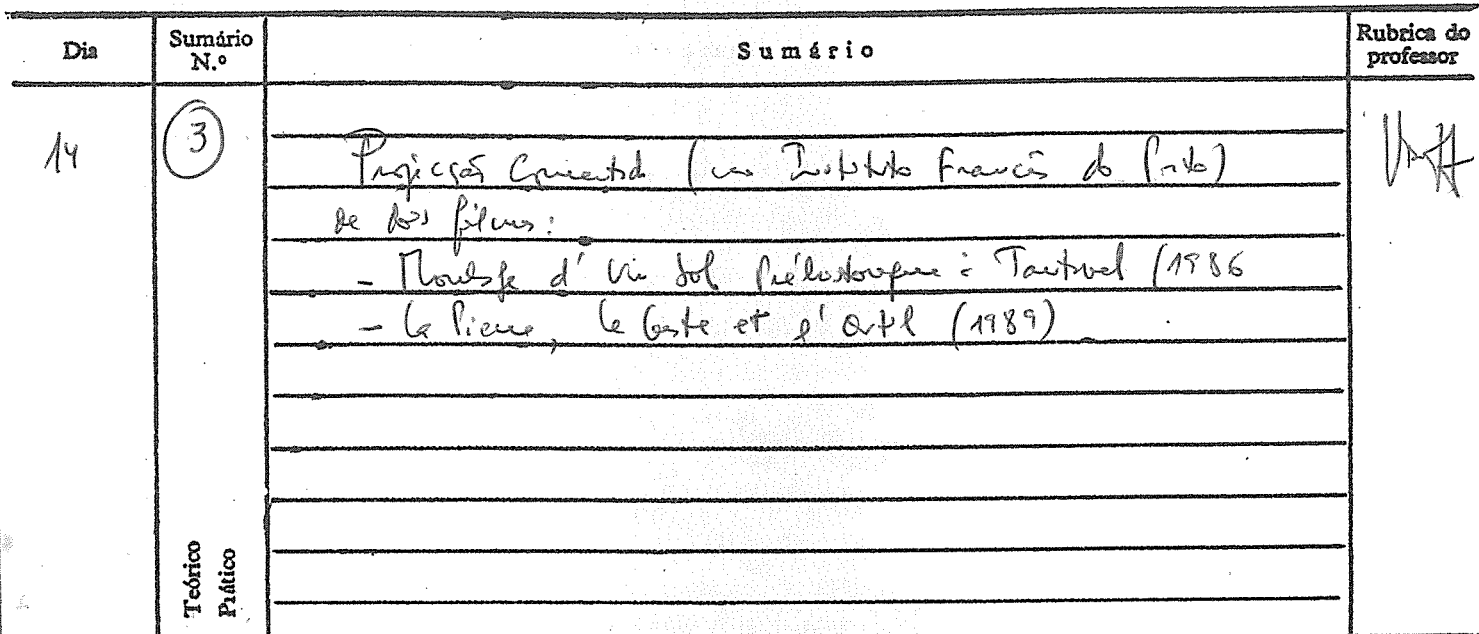 Dia
Sumário N.º
Sumário
Rubrica do professor
14
3
Projecção Comentada (no Instituto Francês do Porto)
de dois filmes:
- Moulage d'un Sol Préhistorique à Tautavel (1986
- La Pierre, le Geste et l'Outil (1989)
Teórico
Prático